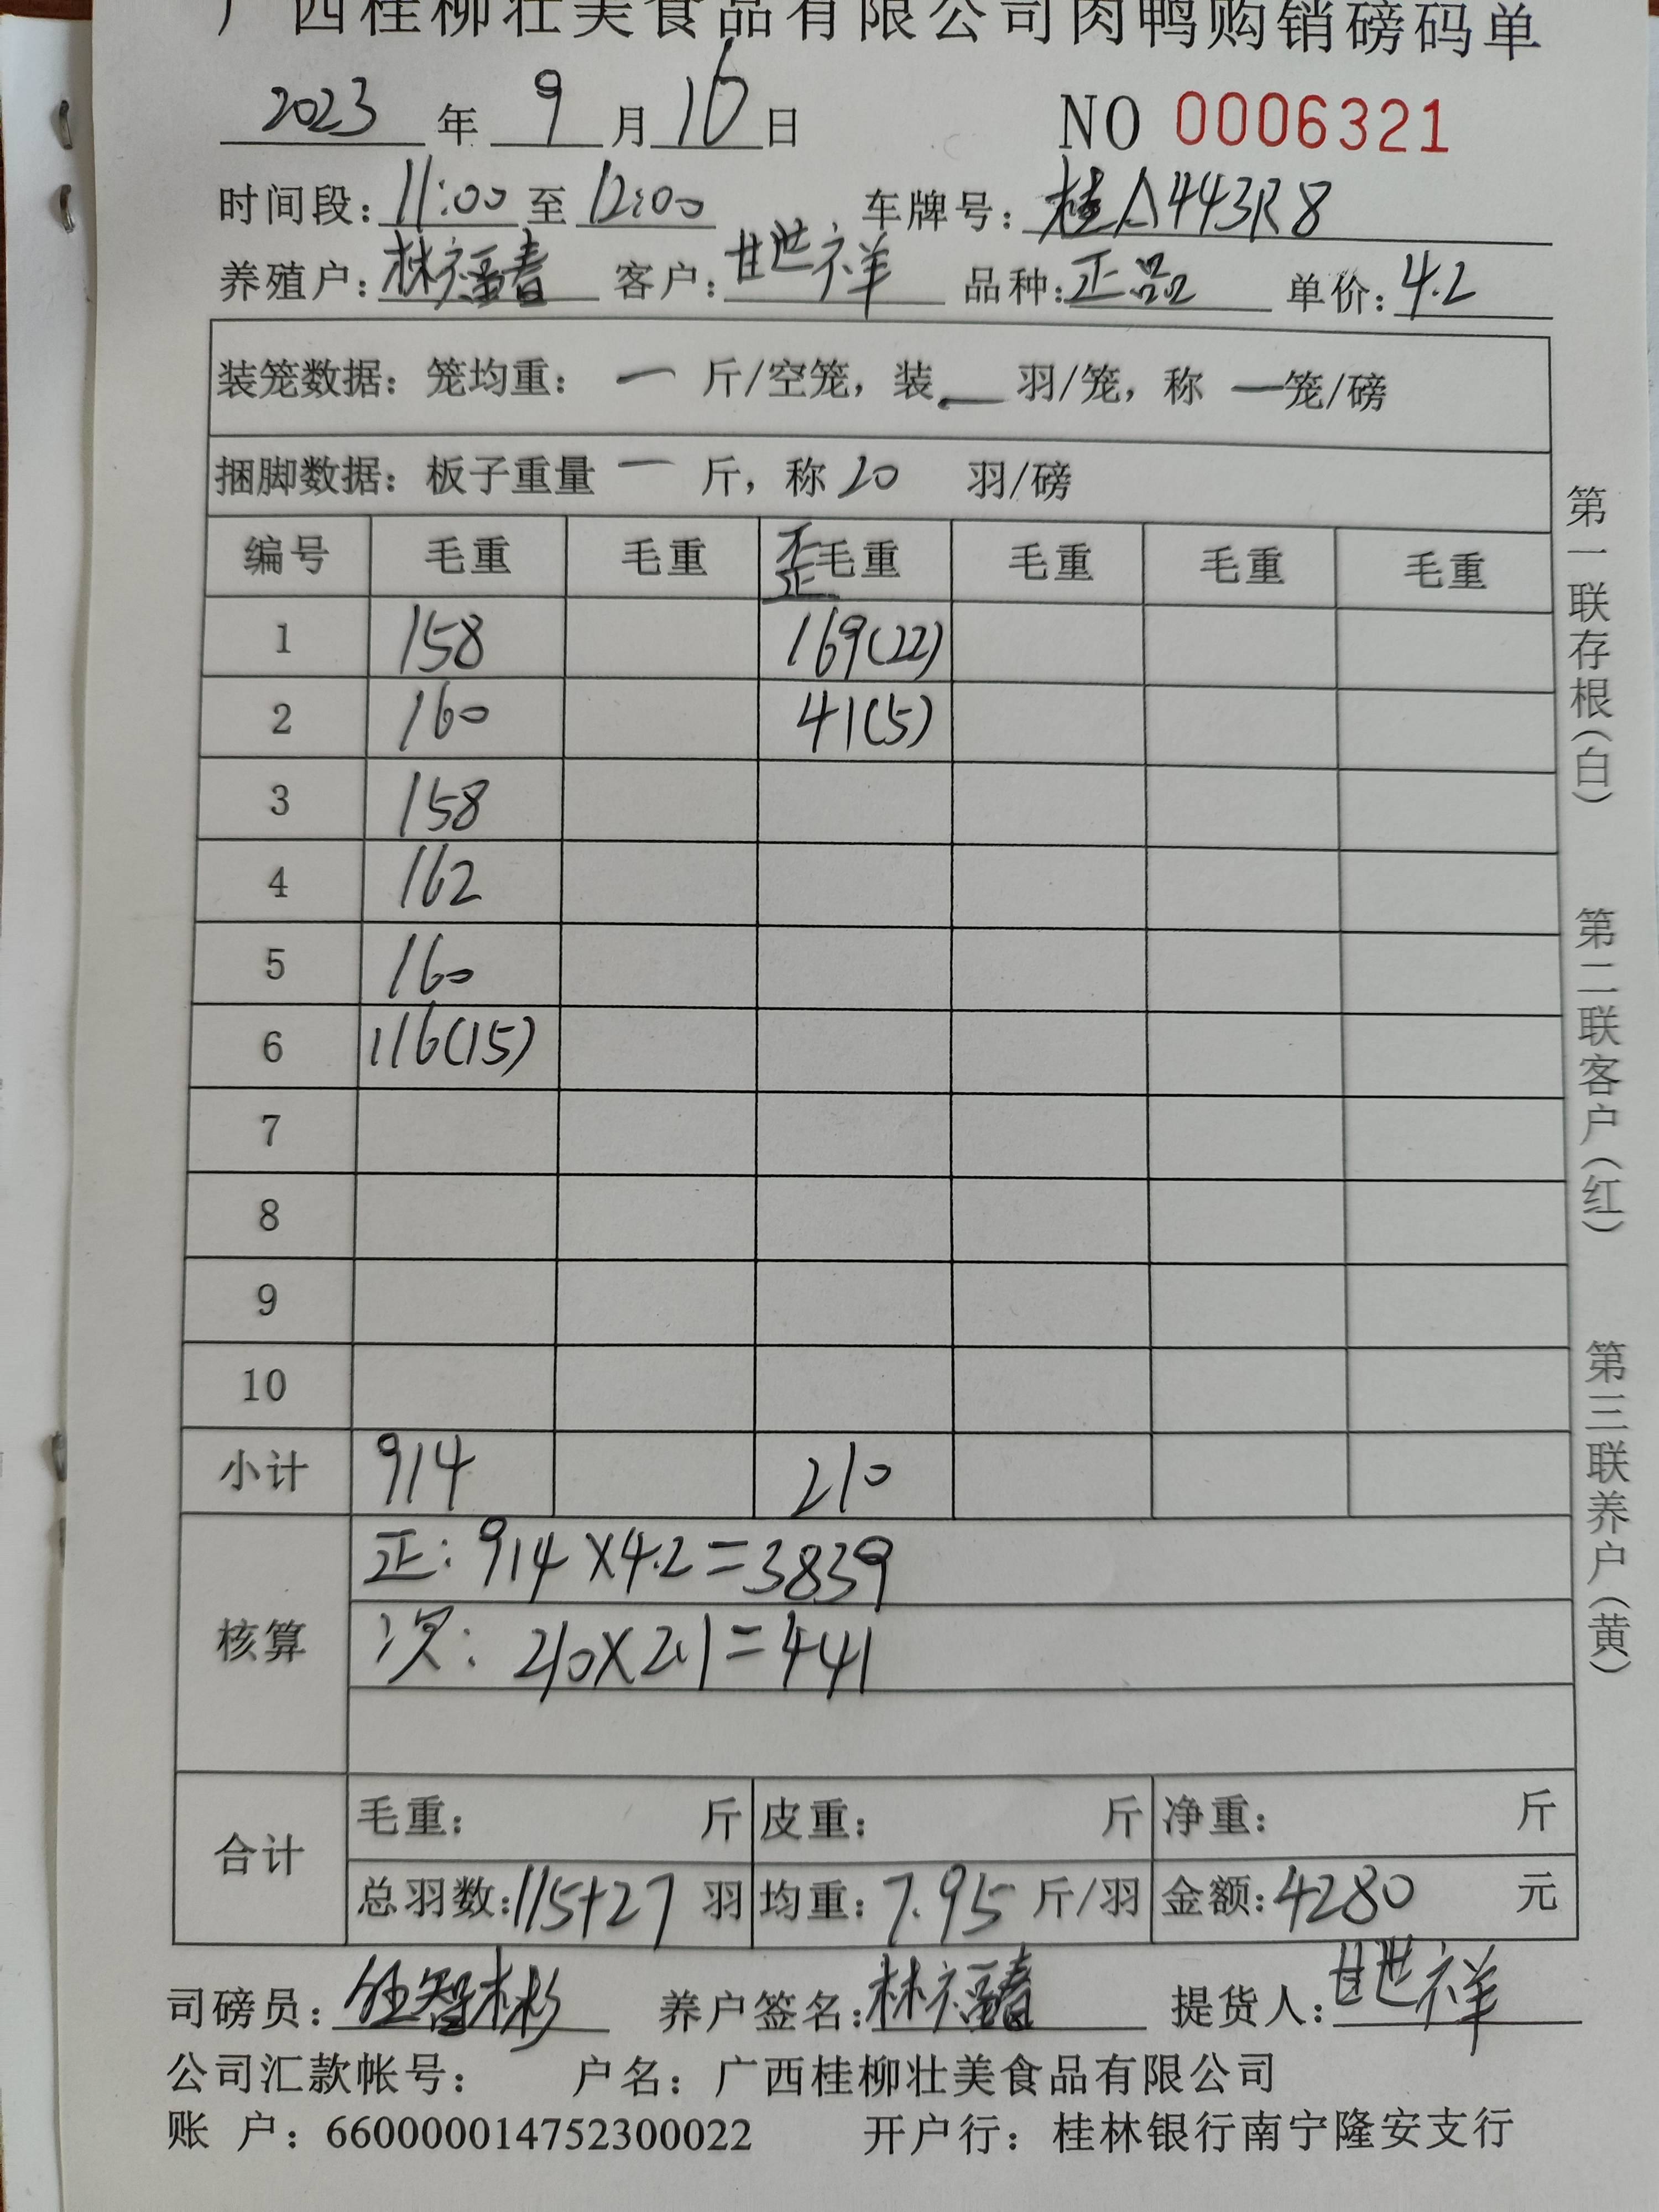 广西桂柳壮美食品有限公司肉鸭购销磅码单
2023 年 9 月 16 日 NO 0006321
时间段: 11:00 至 12:00 车牌号: 桂A443R8
养殖户: 林福春 客户: 甘世祥 品种: 正品 单价: 4.2
装笼数据: 笼均重: 一 斤/空笼, 装 一 羽/笼, 称 一 笼/磅
捆脚数据: 板子重量 一 斤, 称 20 羽/磅
编号 毛重 毛重 歪 毛重 毛重 毛重 毛重
1 158 169(22)
2 160 41(5)
3 158
4 162
5 160
6 116(15)
7
8
9
10
小计 914 210
核算
正: 914×4.2=3839
次: 210×2.1=441
合计
毛重: 斤 皮重: 斤 净重: 斤
总羽数: 115+27 羽 均重: 7.95 斤/羽 金额: 4280 元
司磅员: 伍智彬 养户签名: 林福春 提货人: 甘世祥
公司汇款帐号: 户名: 广西桂柳壮美食品有限公司
账 户: 660000014752300022 开户行: 桂林银行南宁隆安支行
第一联存根(白)
第二联客户(红)
第三联养户(黄)